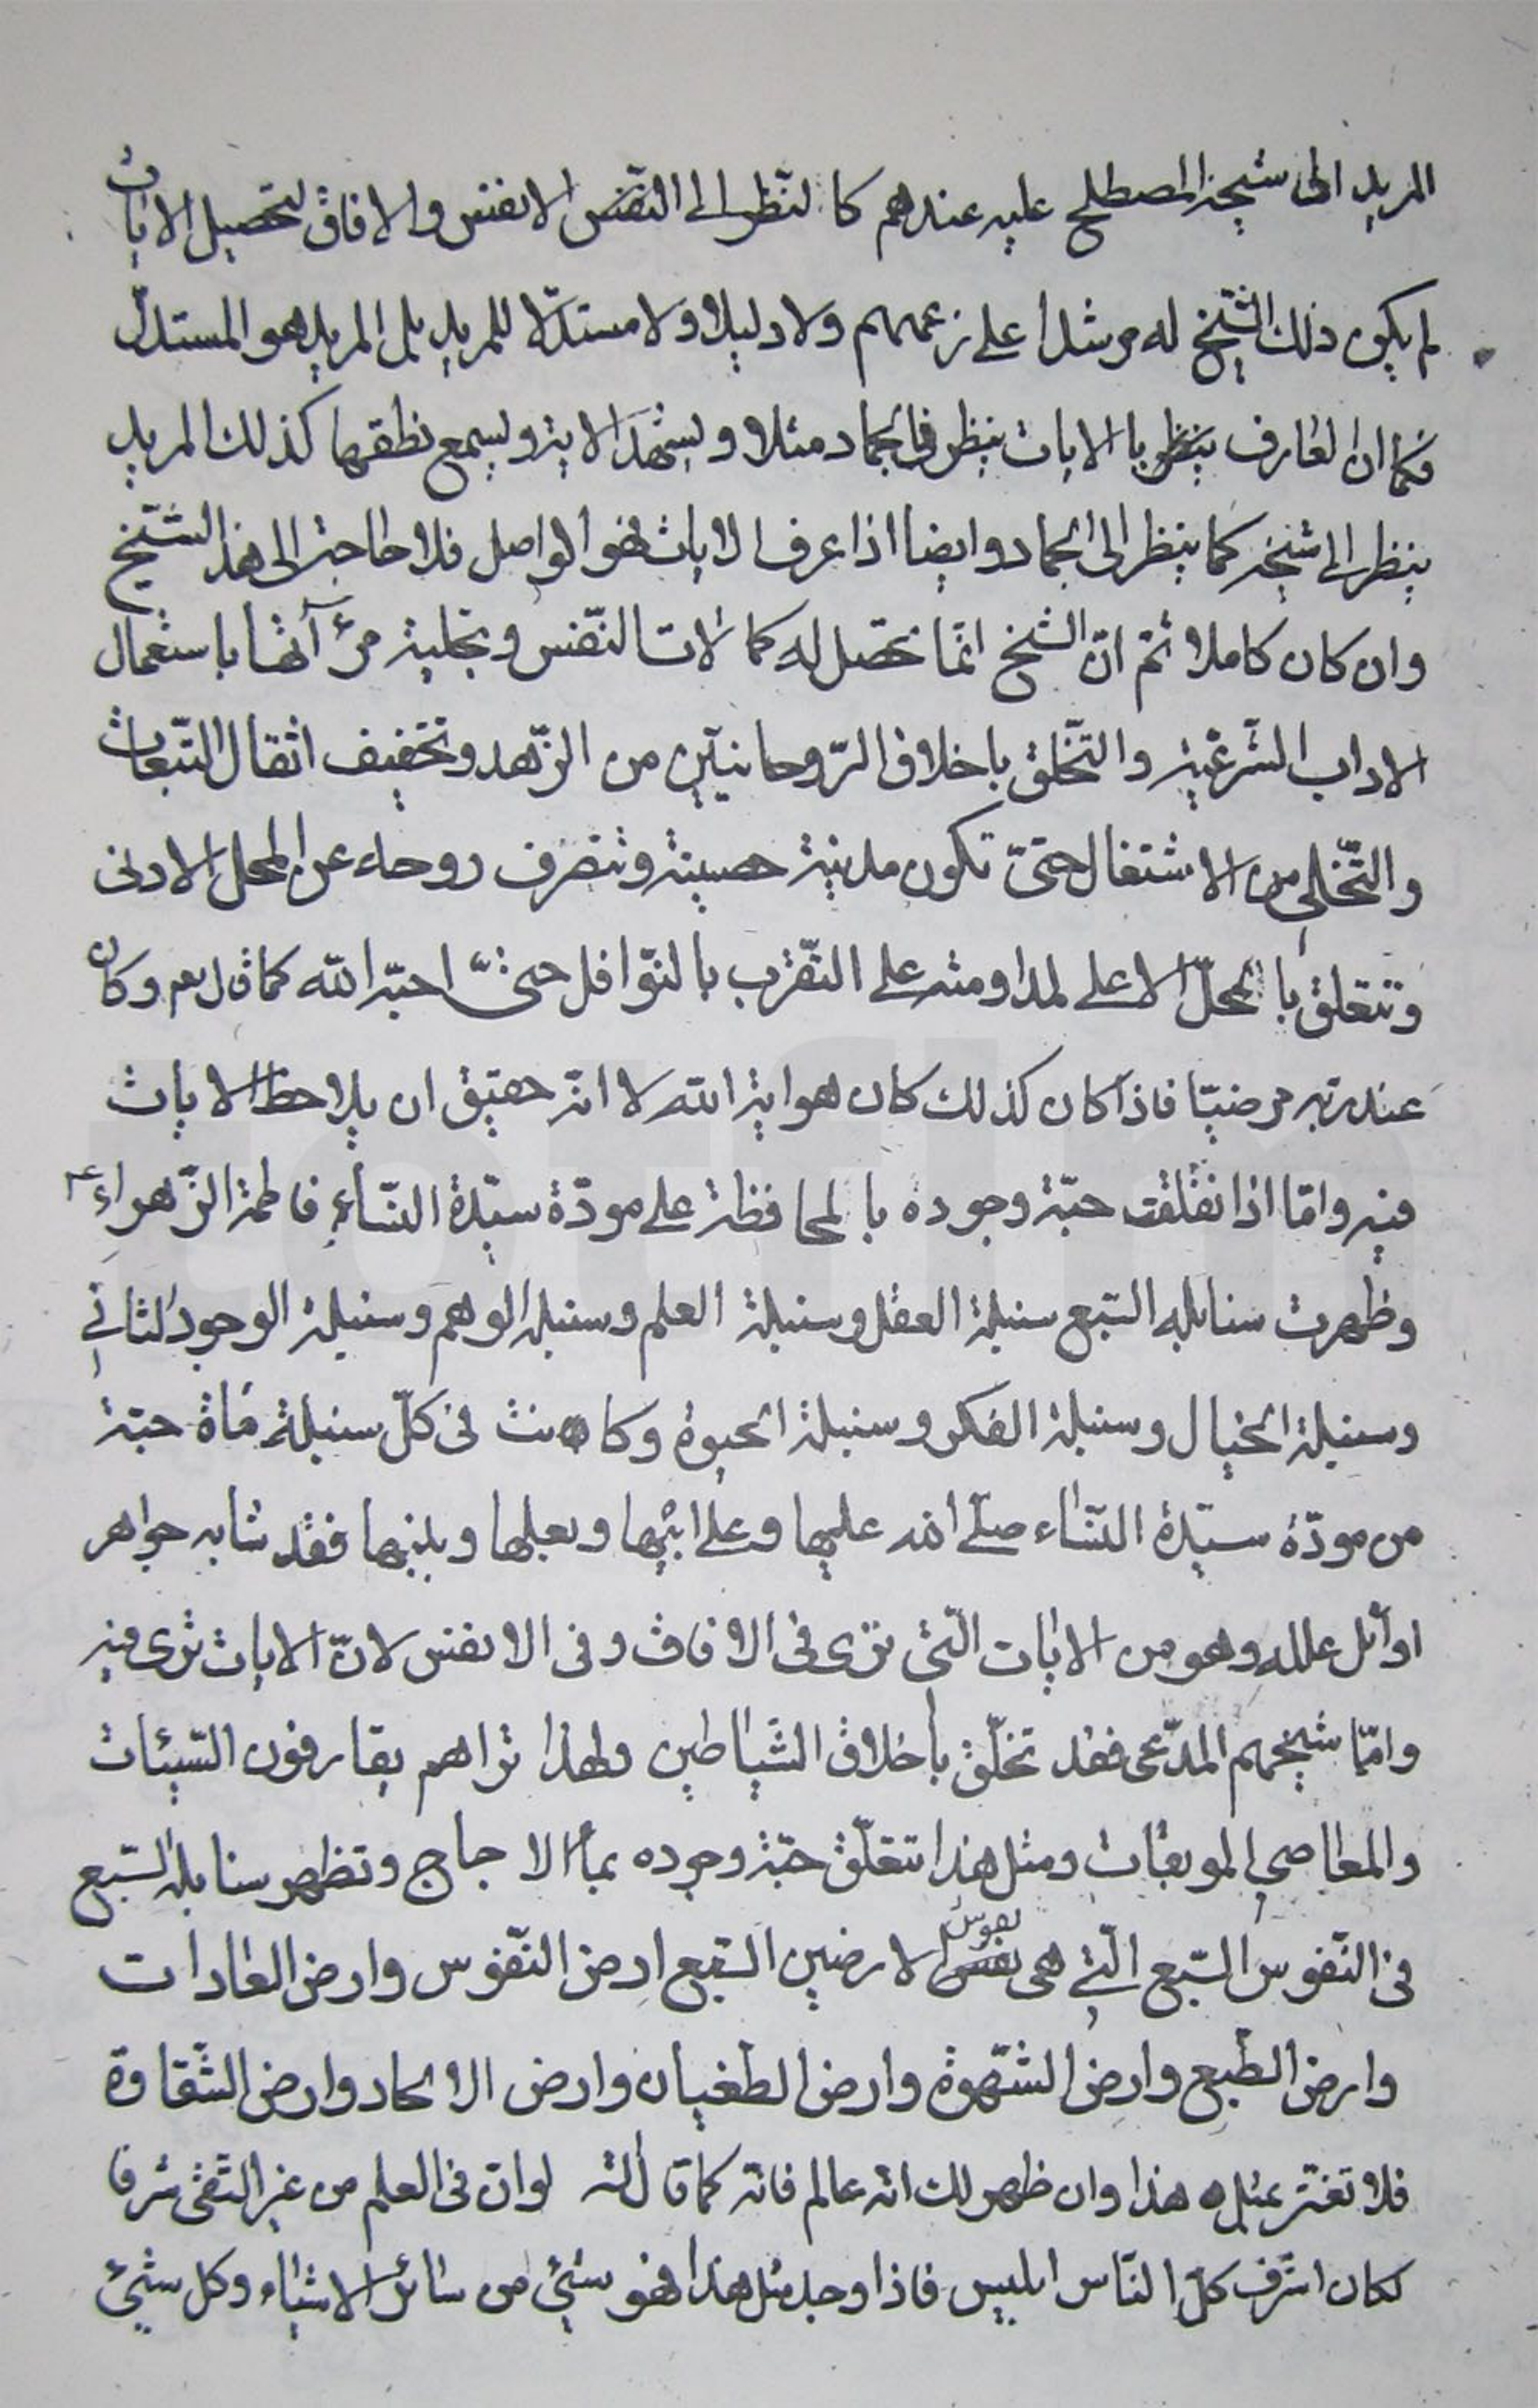 المريد الى شيخه المصطلح عليه عندهم كالنّظر الى النّقش الانفس والافاق لتحصيل الايات
لم يكن ذلك الشّيخ له مرشدا على زعمهم ولا دليلا ولا مستدلّا للمريد بل المريد هو المستدلّ
فكما ان العارف ينظر بالايات ينظر في الجماد مثلا ويشهد الاية ويسمع نطقها كذلك المريد
ينظر الى شيخه كما ينظر الى الجماد وايضا اذا عرف الايات فهو الواصل فلا حاجة الى هذا الشّيخ
وان كان كاملا ثمّ انّ الشّيخ انّما تحصّل له كمالات النّفس وتجلية مرآتها باستعمال
الاداب الشّرعيّة والتّخلّق باخلاق الرّوحانيّين من الزّهد وتخفيف اثقال التّبعات
والتّخلّي من الاشتغال حتّى تكون مدينة حصينة وتنصرف روحه عن المحل الادنى
وتتعلق بالمحلّ الاعلى لمداومته على التّقرّب بالنّوافل حتّى احبّه الله كما قال تعم وكان
عند ربّه مرضيّا فاذا كان كذلك كان هو اية الله لا انّه حقيق ان يلاحظ الايات
فيه وامّا اذا تفلّقت حبّة وجوده بالمحافظة على مودّة سيّدة النّساء فاطمة الزّهراء ع
وظهرت سنابله السّبع سنبلة العقل وسنبلة العلم وسنبلة الوهم وسنبلة الوجود الثاني
وسنبلة الخيال وسنبلة الفكر وسنبلة الحيوة وكانت في كلّ سنبلة مأة حبّة
من مودّة سيّدة النّساء صلّى الله عليها وعلى ابيها وبعلها وبنيها فقد شابه جواهر
اوائل علله وهو من الايات الّتي ترى في الافاق وفي الانفس لانّ الايات ترى فيه
وامّا شيخهم المدّعى فقد تخلّق باخلاق الشّياطين ولهذا تراهم يقارفون السّيئات
والمعاصي الموبقات ومثل هذا تتعلّق حبّة وجوده بماء الاجاج وتظهر سنابله السّبع
في النّفوس السّبع الّتي هي نفوس الارضين السّبع ارض النّفوس وارض العادات
وارض الطّبع وارض الشّهوة وارض الطغيان وارض الالحاد وارض الشّقاوة
فلا تغترّ بمثل هذا وان ظهر لك انه عالم فانه كما قال الله لو انّ في العلم من غير التّقى شرفا
لكان اشرف كلّ النّاس ابليس فاذا وجد مثل هذا فهو شيئ من سائر الاشياء وكل شيئ